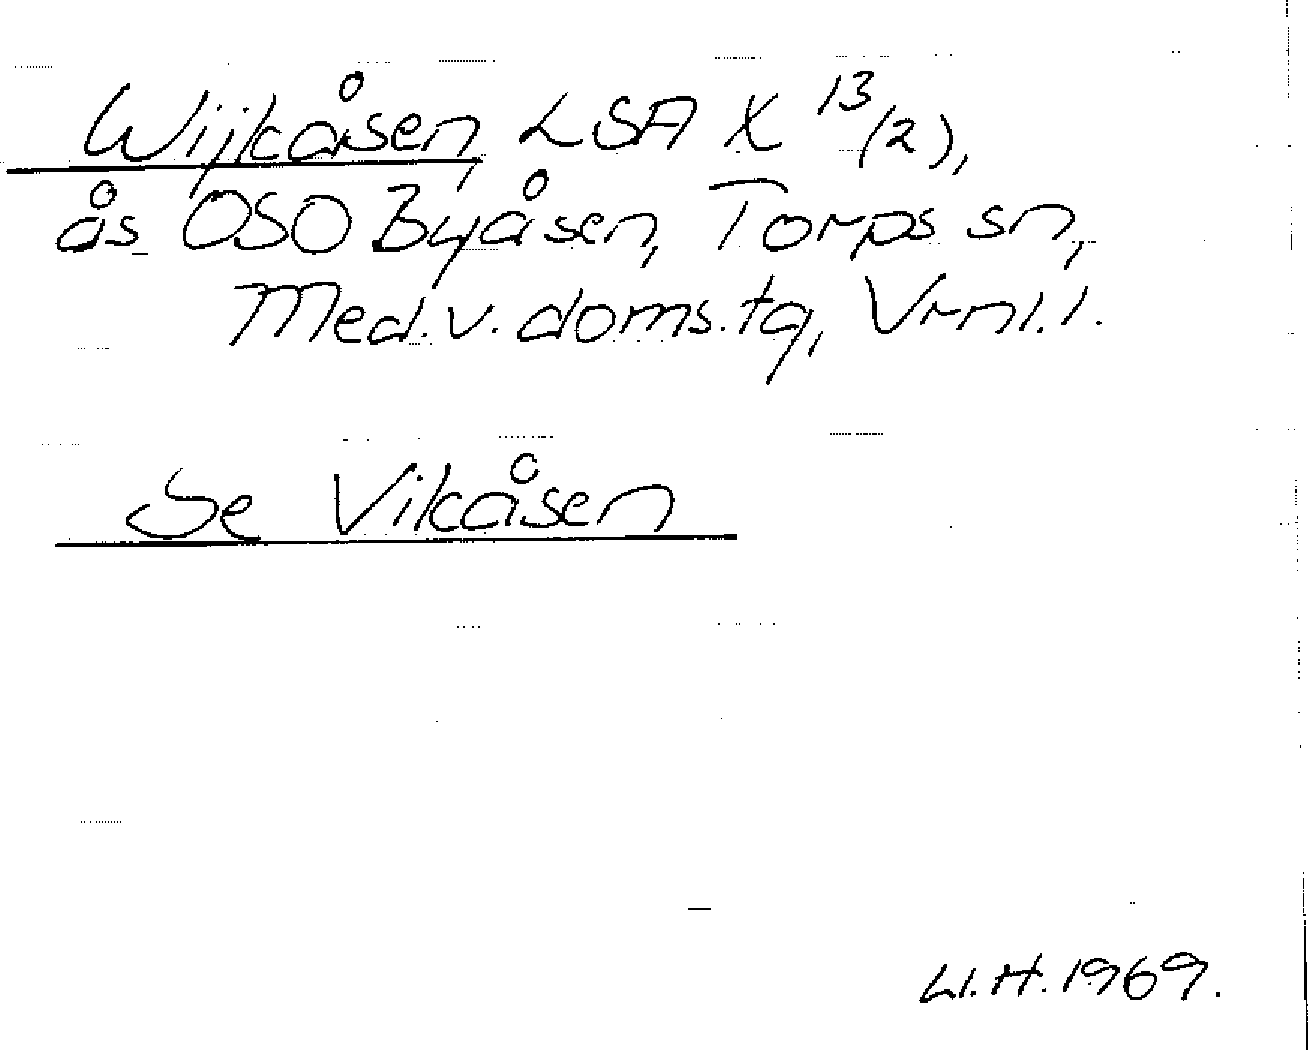 Wijkåsen, LSA X 13/(2),
ås OSO Byåsen, Torps sn,
Med.v. doms.tg, Vrnl.l.
Se Vikåsen
Ll.H. 1969.